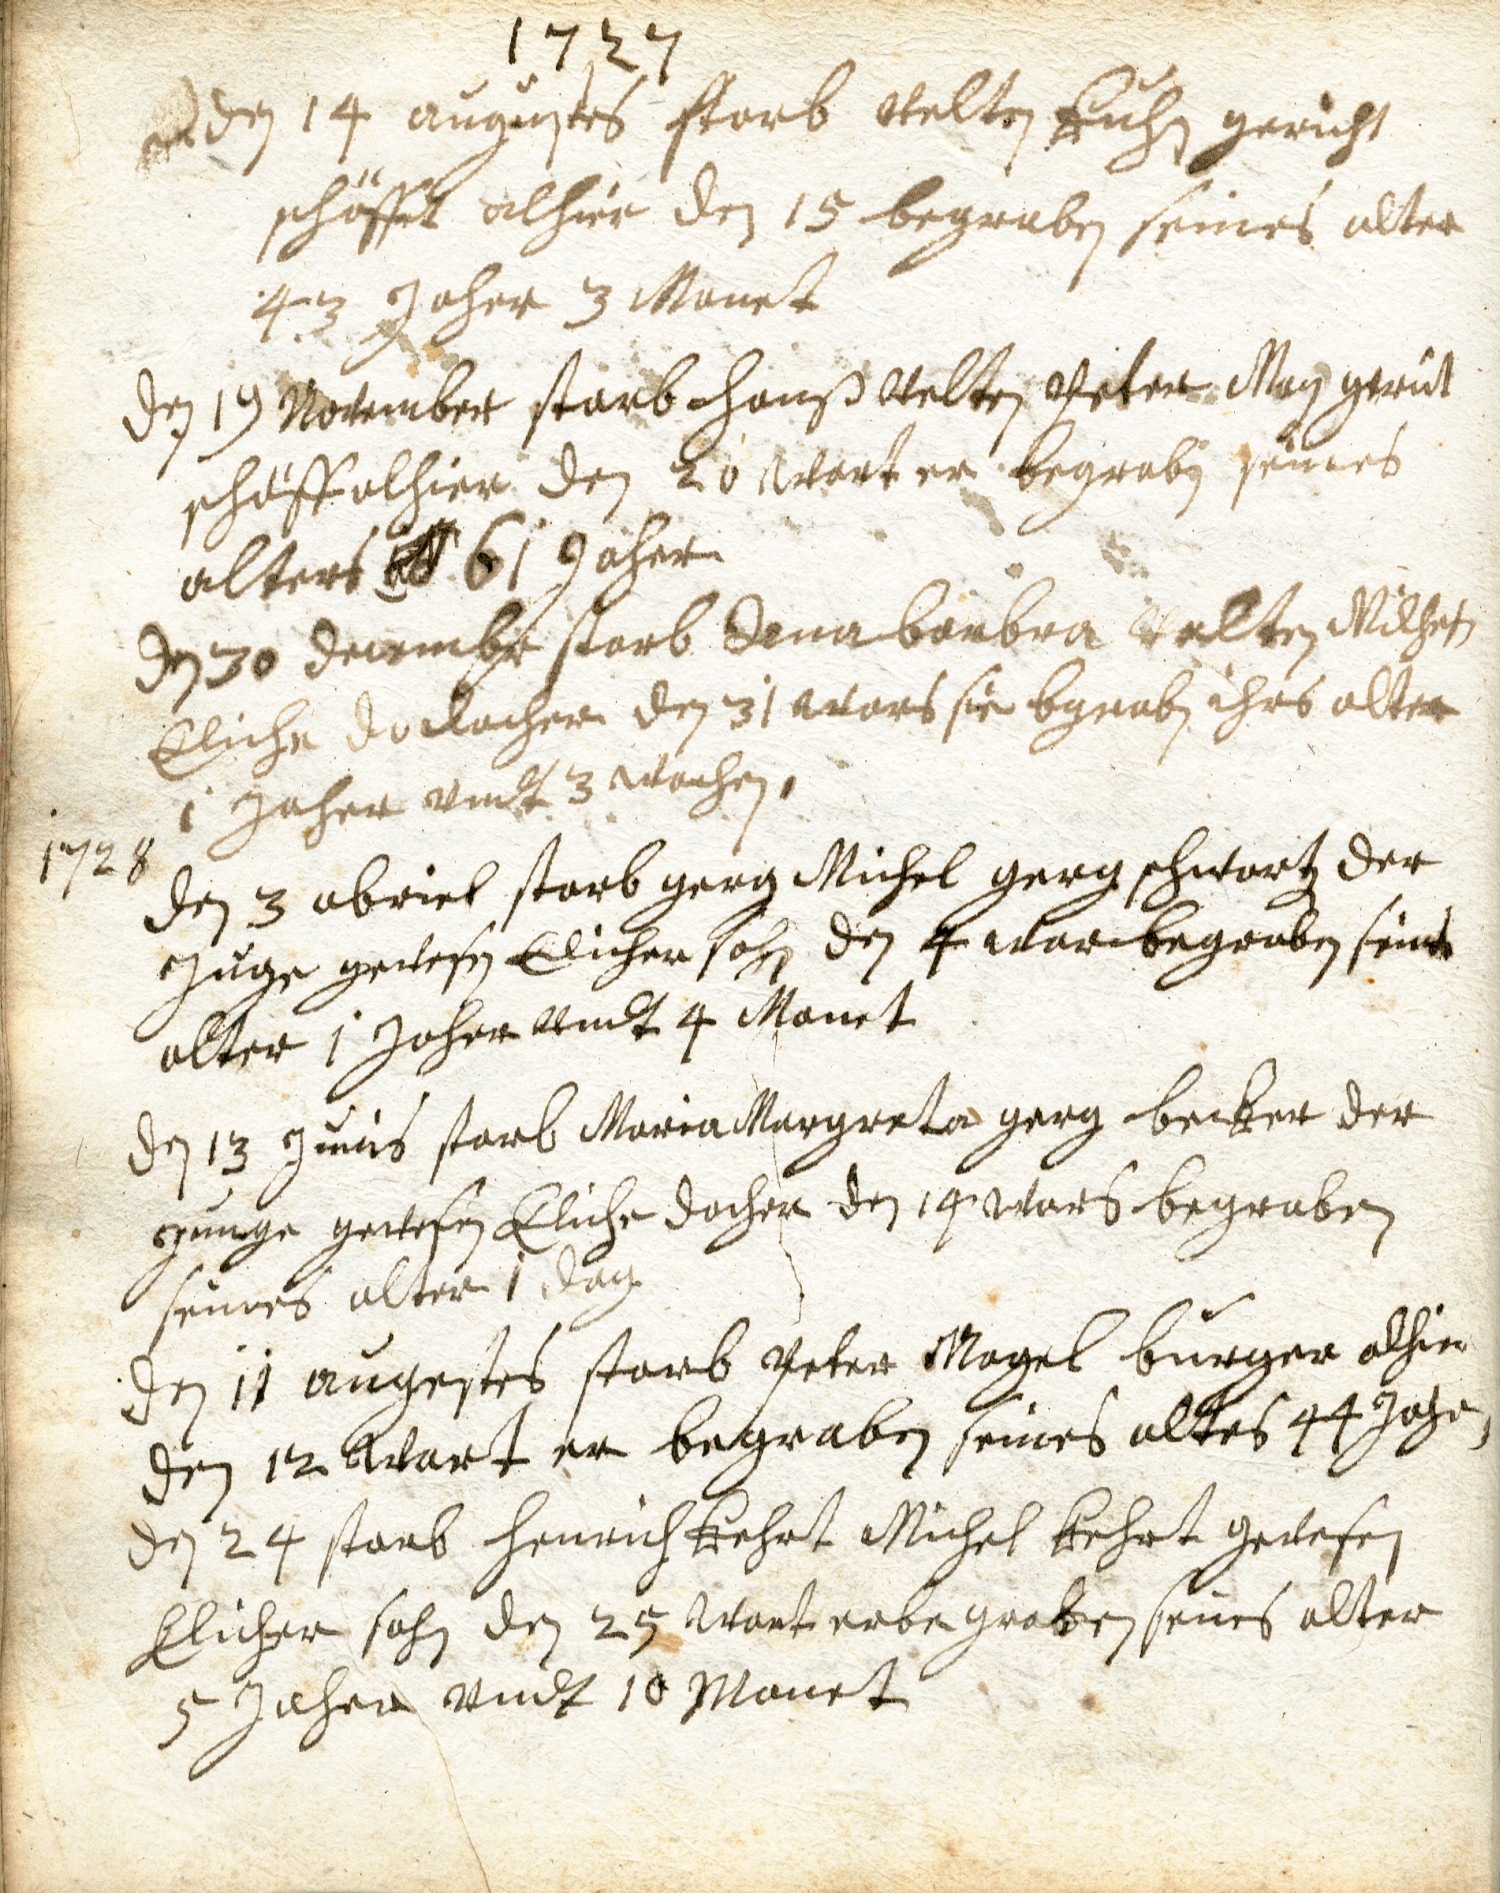 1727
den 14 augustes starb Velten Kuhn gericht
schöffet alhier den 15 begraben seines alter
43 Jaher 3 Monet
den 19 November starb hanß Velten Peter May gericht
schöff alhier den 20 wart er begraben seines
alters 61 Jaher
den 30 december starb Anna barbra Velten
Eliche dochter den 31 wars sie bgraben ihrs alter
1 Jaher vndt 3 wochen
1728
den 3 abriel starb gerg Michel gerg schwartz der
Junge gewesen Elicher sohn den 4 war begraben seines
alter 1 Jaher vndt 4 Monet
den 13 Junius starb Maria Margreta gerg becker der
Junge gewesen Eliche docher den 14 wars begraben
seines alter 1 dag
den 11 augestes starb Peter Nagel burger alhier
den 12 wart er begraben seines altes 44 Jaher
den 24 starb henrich Kehrt Michel Kehrt gewesen
Elicher sohn den 25 wart er begraben seines alter
5 Jaher vndt 10 Monet